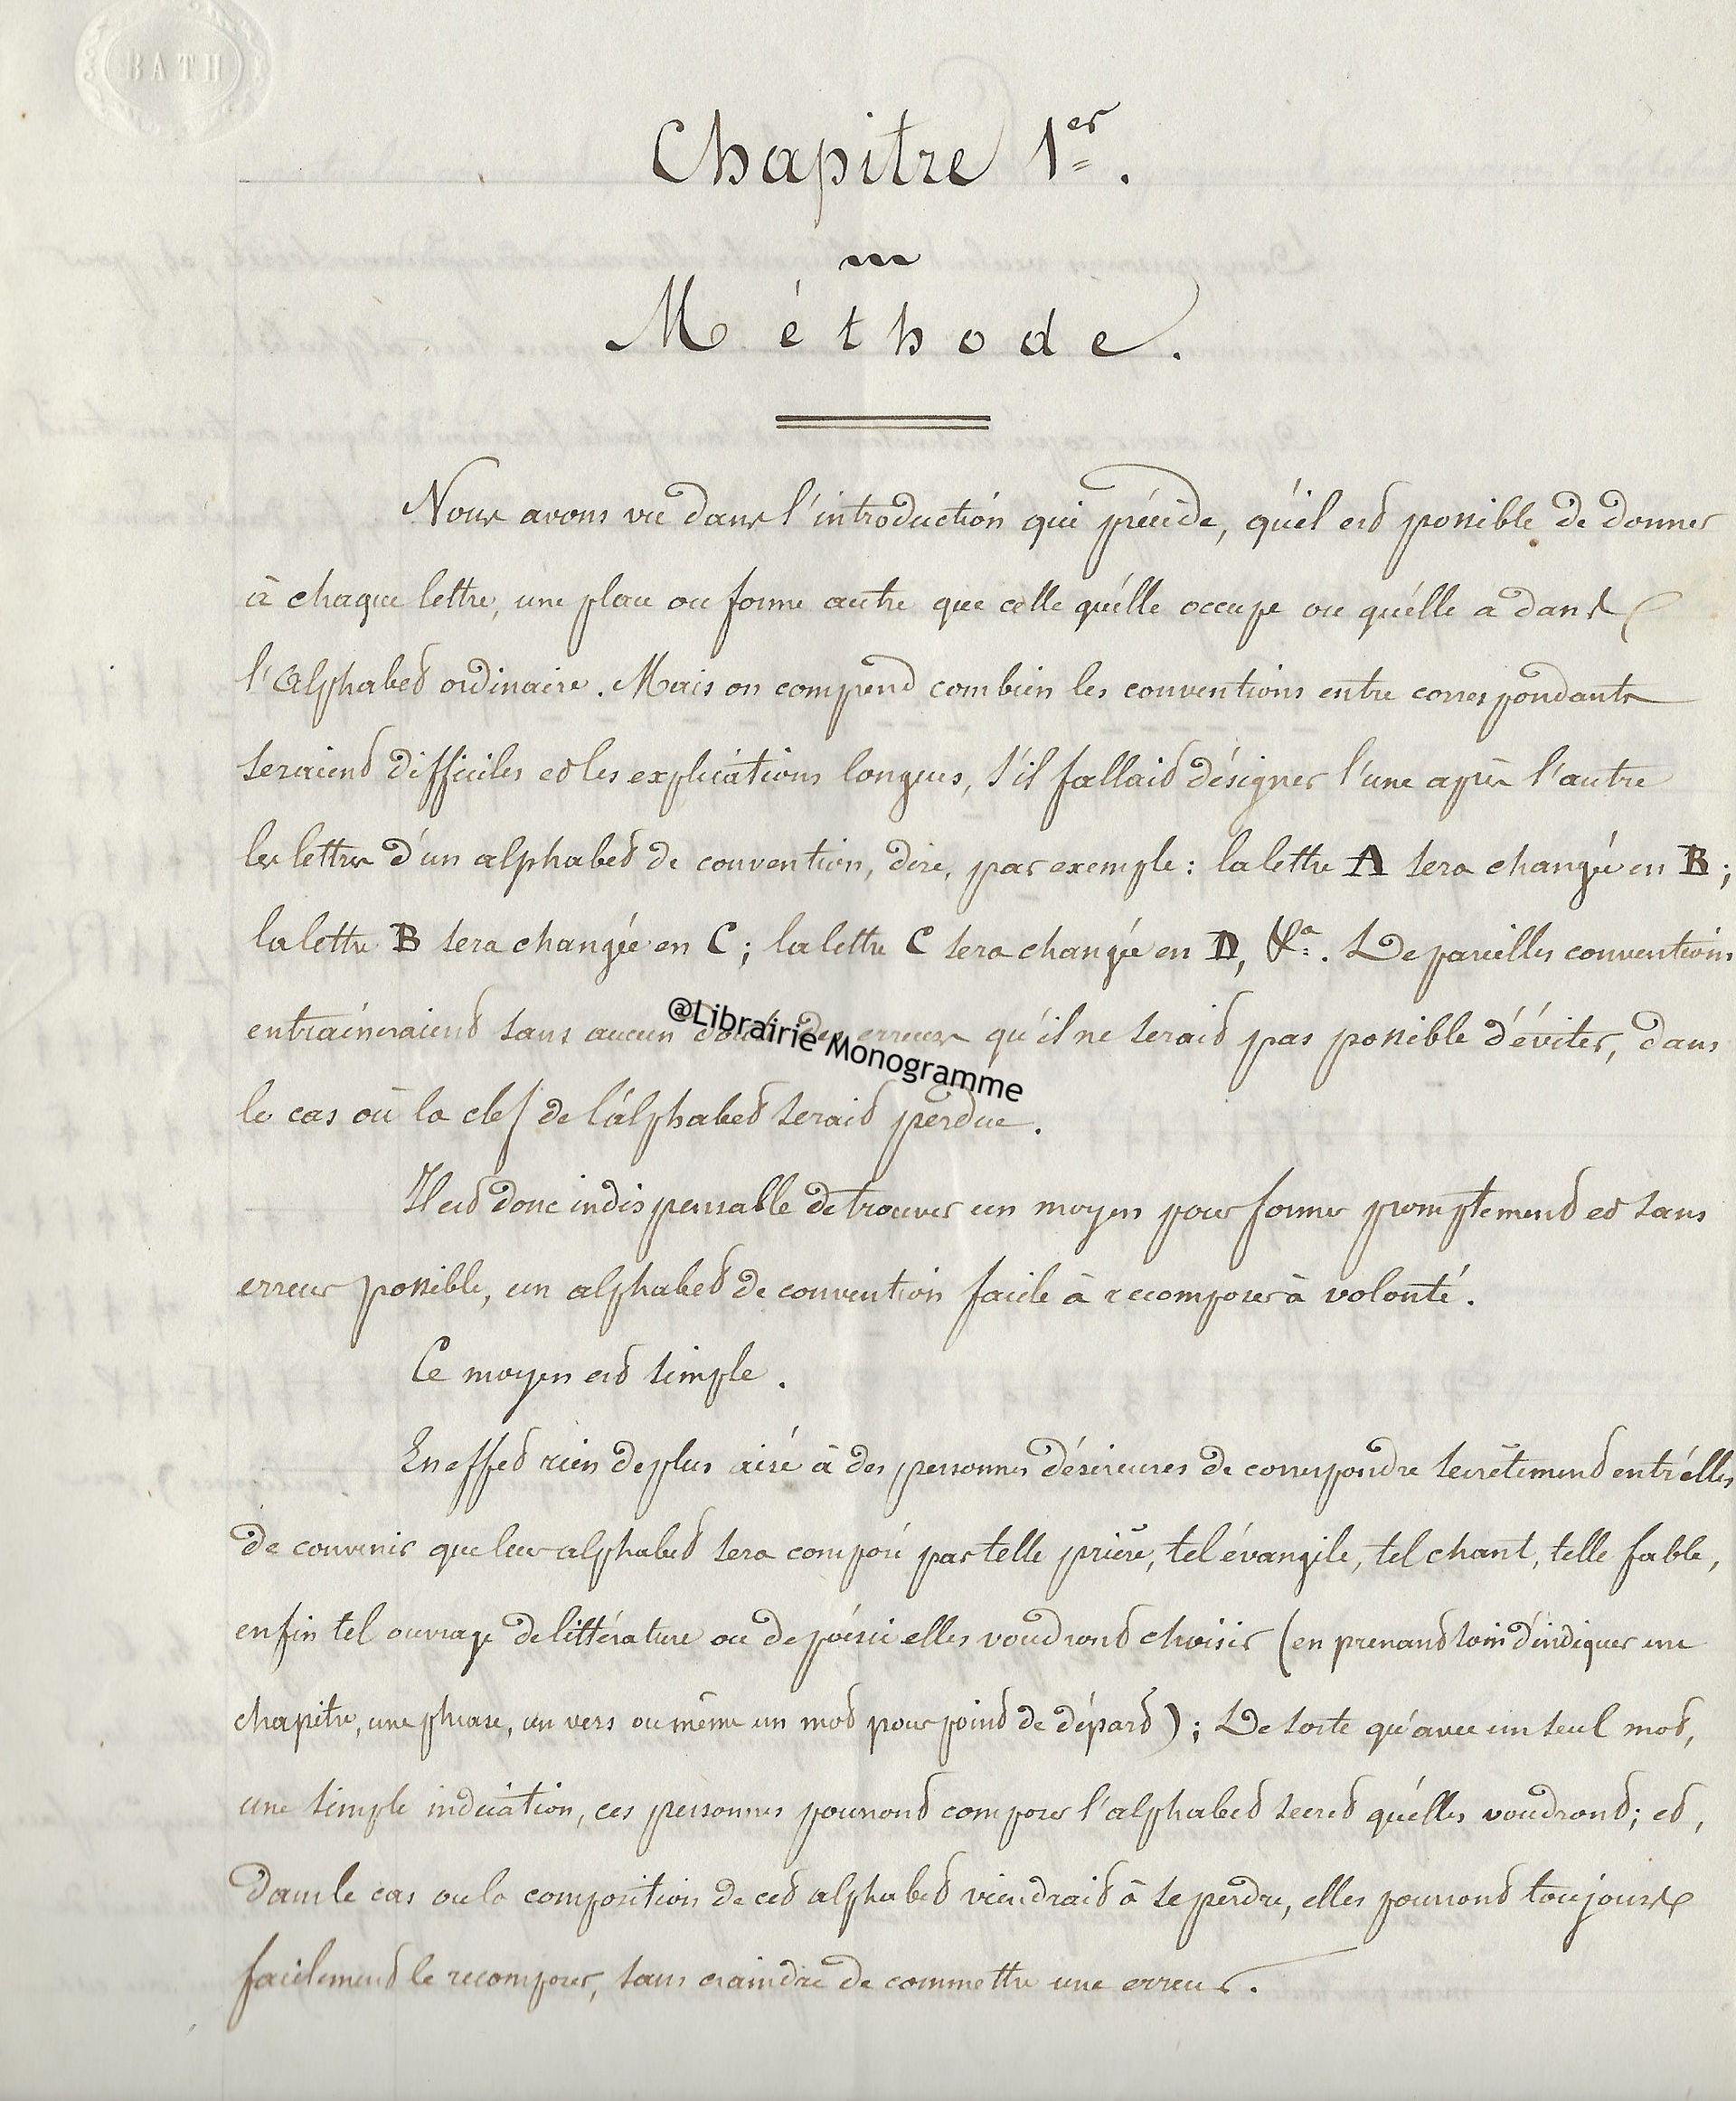 BATH
Chapitre 1er.
Méthode.
Nous avons vu dans l'introduction qui précède, qu'il est possible de donner
à chaque lettre, une place ou forme autre que celle qu'elle occupe ou qu'elle a dans
l'Alphabet ordinaire. Mais on comprend combien les conventions entre correspondants
seraient difficiles et les explications longues, s'il fallait désigner l'une après l'autre
les lettres d'un alphabet de convention, dire, par exemple : la lettre A sera changée en B ;
la lettre B sera changée en C ; la lettre C sera changée en D, &a. De pareilles conventions
entraîneraient sans aucun doute des erreurs qu'il ne serait pas possible d'éviter, dans
le cas où la clef de l'alphabet serait perdue.
Il est donc indispensable de trouver un moyen pour former promptement et sans
erreur possible, un alphabet de convention facile à recomposer à volonté.
Ce moyen est simple.
En effet rien de plus aisé à des personnes désireuses de correspondre secrètement entr'elles
de convenir que leur alphabet sera composé par telle prière, tel évangile, tel chant, telle fable,
enfin tel ouvrage de littérature ou de poésie elles voudront choisir (en prenant soin d'indiquer une
chapitre, une phrase, un vers ou même un mot pour point de départ) ; De sorte qu'avec un seul mot,
une simple indication, ces personnes pourront composer l'alphabet secret qu'elles voudront ; et,
dans le cas où la composition de cet alphabet viendrait à se perdre, elles pourront toujours
facilement le recomposer, sans craindre de commettre une erreur.
@Librairie Monogramme